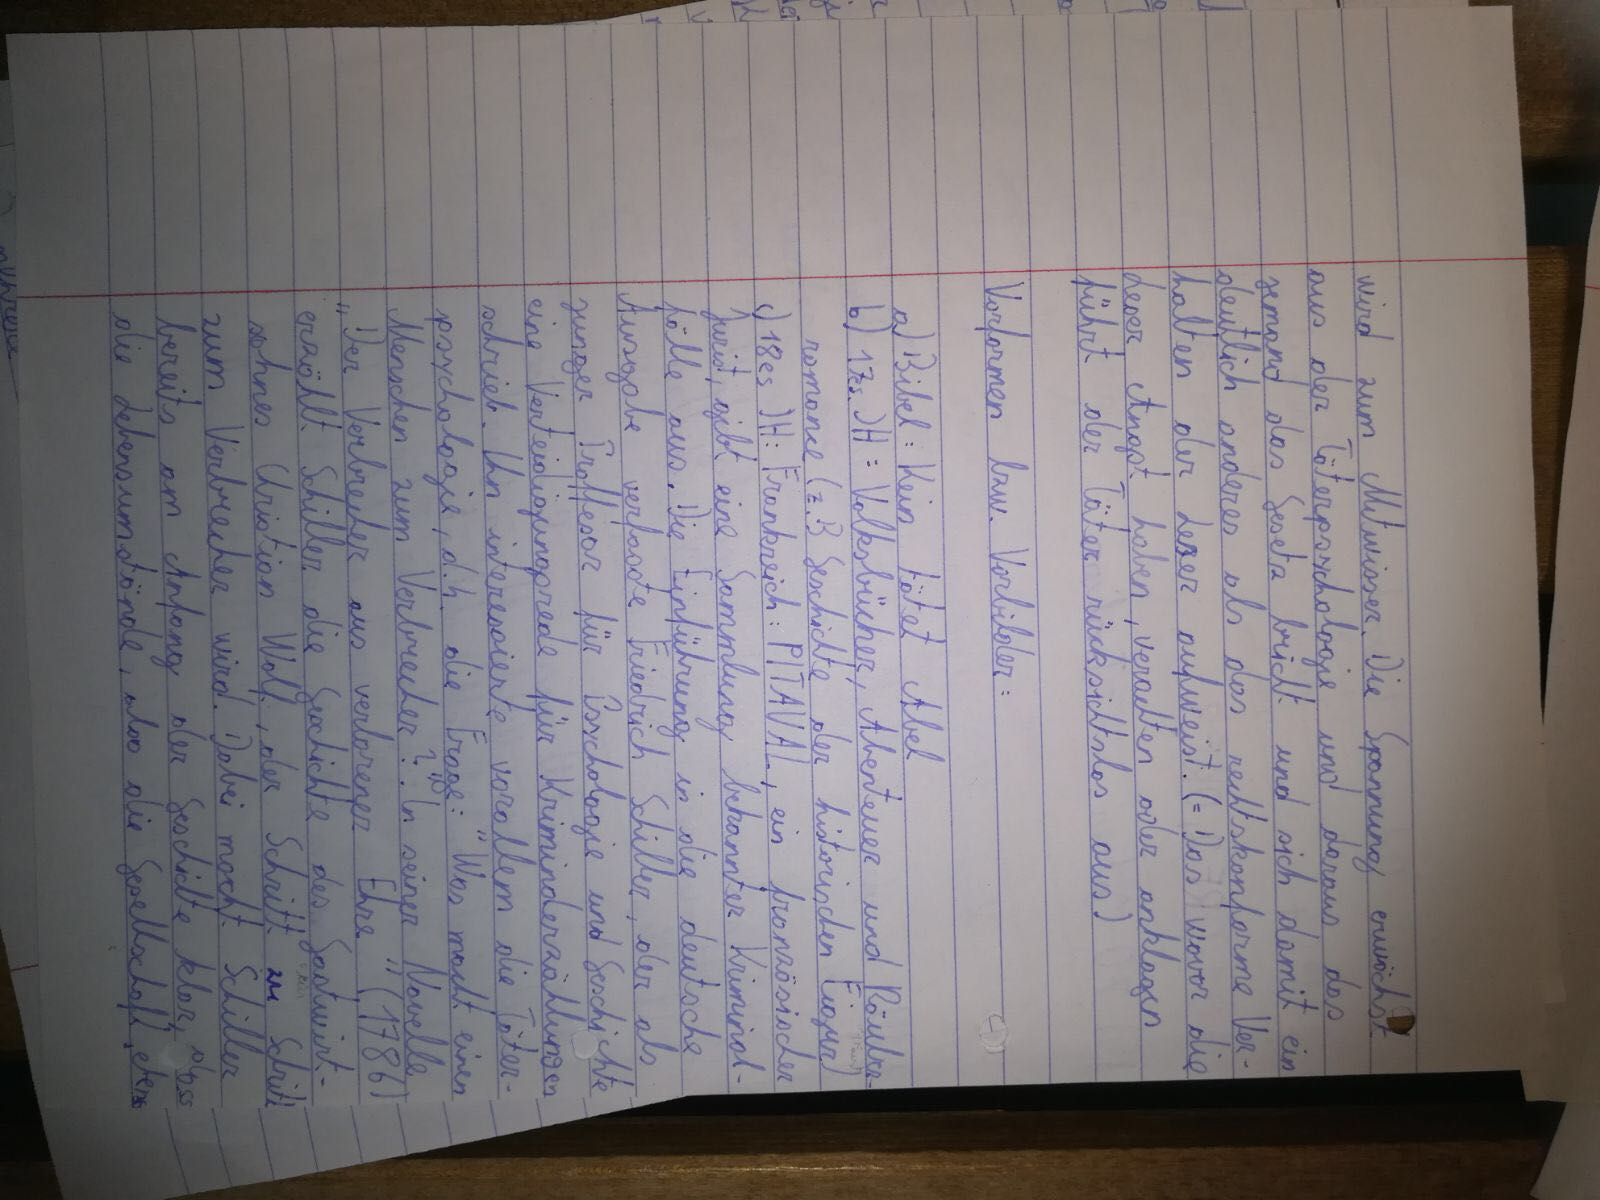 wird zum Mitwisser. Die Spannung erwächst
aus der Täterpsychologie und daraus das
jemand das Gesetz bricht und sich damit ein
deutlich anderes als das rechtskonforme Ver-
halten der Leser aufweist. (= Das wovor die
Leser Angst haben, verachten oder anklagen
führt der Täter rücksichtslos aus)
Vorformen bzw. Vorbilder:
a) Bibel: Kein tötet Abel
b) 17es. JH: Volksbücher, Abenteuer und Räuber-
romane (z.B Geschichte der historischen Figur)
c) 18es JH: Frankreich: PITAVAL, ein französischer
Jurist, gibt eine Sammlung bekannter Kriminal-
fälle aus. Die Einführung in die deutsche
Ausgabe verfasste Friedrich Schiller, der als
junger Proffesor für Psychologie und Geschichte
eine Verteidigungsrede für Kriminderzählungen
schrieb. Ihn interessierte vorallem die Täter-
psychologie, d.h. die Frage: "Was macht einen
Menschen zum Verbrecher?". In seiner Novelle
„Der Verbrecher aus verlorener Ehre" (1786)
erzählt Schiller die Geschichte des Gastwirt-
sohnes Christian Wolf, der Schritt zu Schritt
zum Verbrecher wird. Dabei macht Schiller
bereits am Anfang der Geschichte klar, dass
die Lebensumstände, also die Gesellschaft,